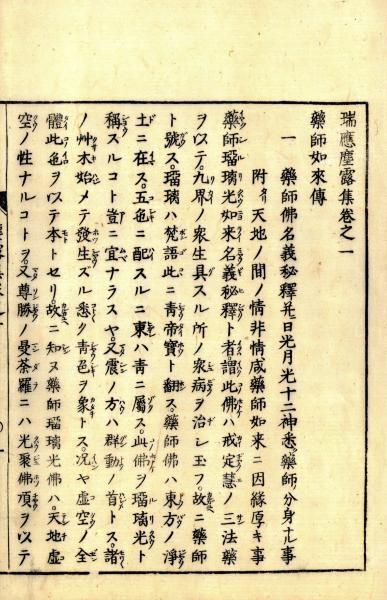 瑞應塵露集卷之一
藥師如來傳
一 藥師佛名義秘釋并日光月光十二神悉藥師分身ナル事
附 天地ノ間ノ情非情咸藥師如來ニ因緣厚キ事
藥師瑠璃光如來名義秘釋ト者謂此佛ハ戒定慧ノ三法藥
ヲ以テ。九界ノ衆生具スル所ノ衆病ヲ治シ玉フ。故ニ藥師
ト號ス。瑠璃ハ梵語此ニ青帝寶ト翻ス。藥師佛ハ東方ノ淨
土ニ在ス。五色ニ配スルニ東ハ青ニ屬ス。此佛ヲ瑠璃光ト
稱スルコト豈ニ宜ナラスヤ。又震ノ方ハ群動ノ首トス。諸
ノ艸木始メテ發生ズル悉ク青色ヲ象トス。况ヤ虚空ノ全
體此色ヲ以テ本トセリ。故ニ知ヌ藥師瑠璃光佛ハ。天地虚
空ノ性ナルコトヲ。又尊勝ノ曼荼羅ニハ光聚佛頂ヲ以テ